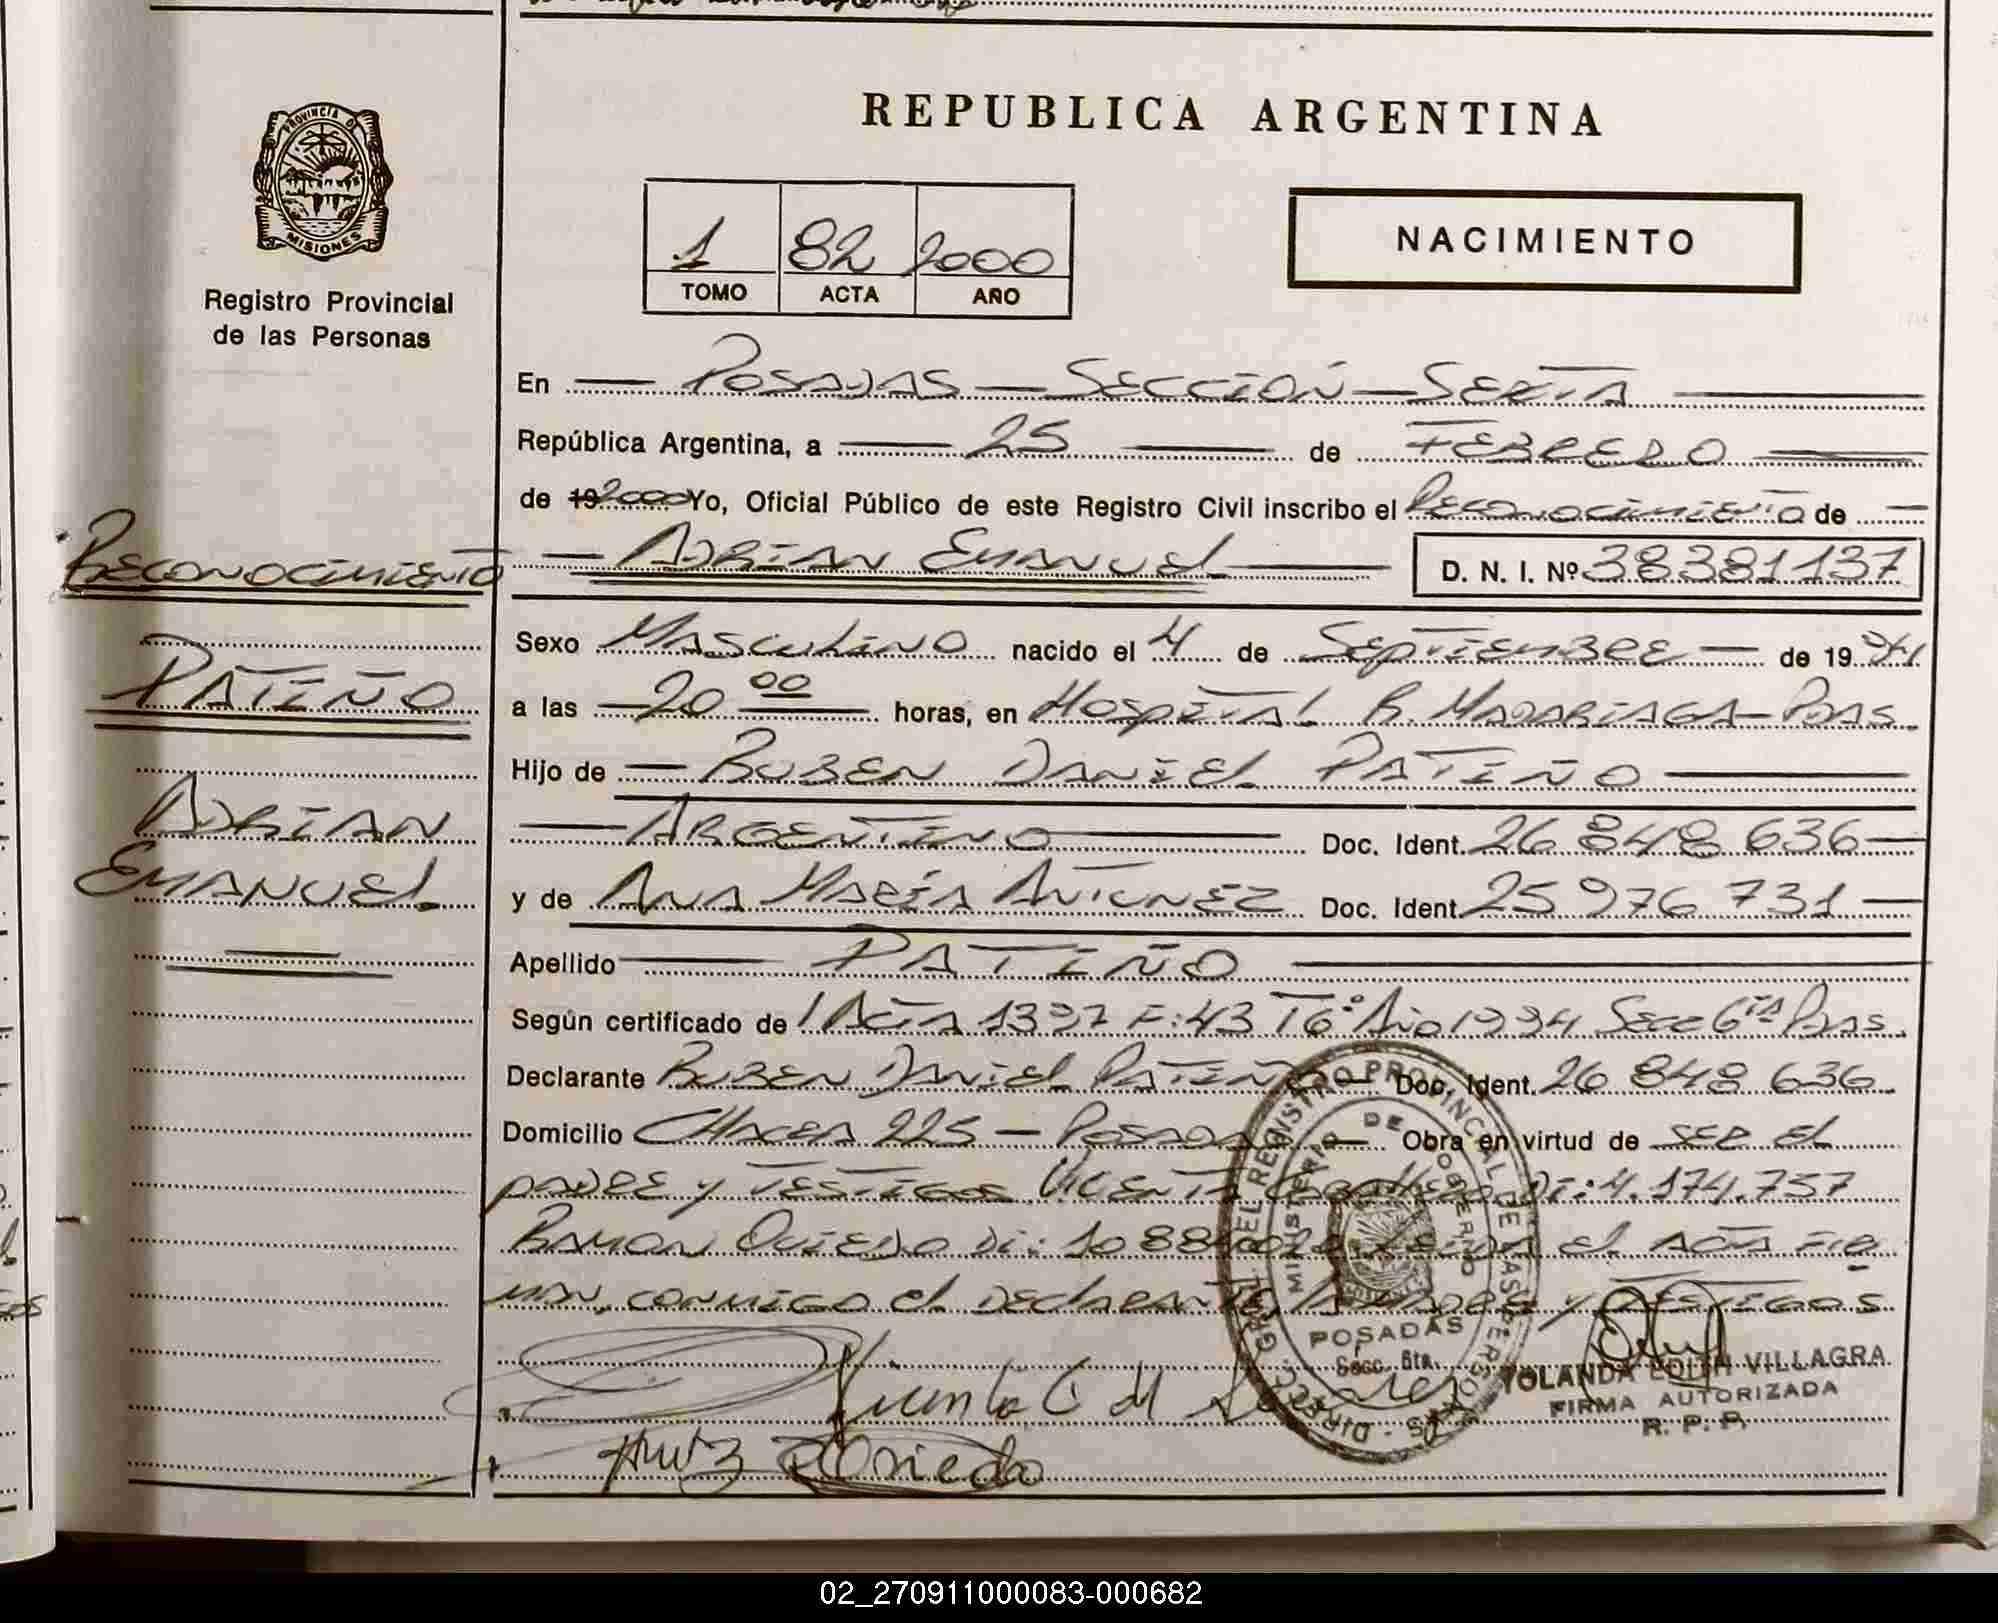 REPUBLICA ARGENTINA
PROVINCIA DE
MISIONES
Registro Provincial
de las Personas
1 82 2000
TOMO ACTA AÑO
NACIMIENTO
En — POSADAS — SECCION — SEXTA —
República Argentina, a — 25 — de FEBRERO —
de 19 2000 Yo, Oficial Público de este Registro Civil inscribo el Reconocimiento de —
— ADRIAN EMANUEL — D. N. I. Nº 38381137
Reconocimiento
PATIÑO
ADRIAN
EMANUEL
Sexo Masculino nacido el 4 de Septiembre — de 19
a las — 20 00 — horas, en Hospital R. MADARIAGA — Pdas
Hijo de — RUBEN DANIEL PATIÑO —
— ARGENTINO — Doc. Ident. 26 848 636 —
y de ANA MARÍA ANTUNEZ Doc. Ident. 25 976 731 —
Apellido — PATIÑO —
Según certificado de Acta 1397 F: 43 Tº 6 Año 1994 Secc 6ta Pdas.
Declarante RUBEN DANIEL PATIÑO — Doc. Ident. 26 848 636
Domicilio CHACRA 225 — POSADAS — Obra en virtud de SER EL
PADRE y TESTIGOS VICENTA Di: 4.174.757
RAMON OVIEDO Di: 10 88 LEIDA el ACTA FIR
MAN, CONMIGO el DECLARANTE, y TESTIGOS
Vicenta C d
R Oviedo
DIRECC. GRAL. DEL REGISTRO PROVINCIAL DE LAS PERSONAS
MINISTERIO DE GOBIERNO
POSADAS
Secc. 6ta.
YOLANDA EDITH VILLAGRA
FIRMA AUTORIZADA
R. P. P.
02_270911000083-000682